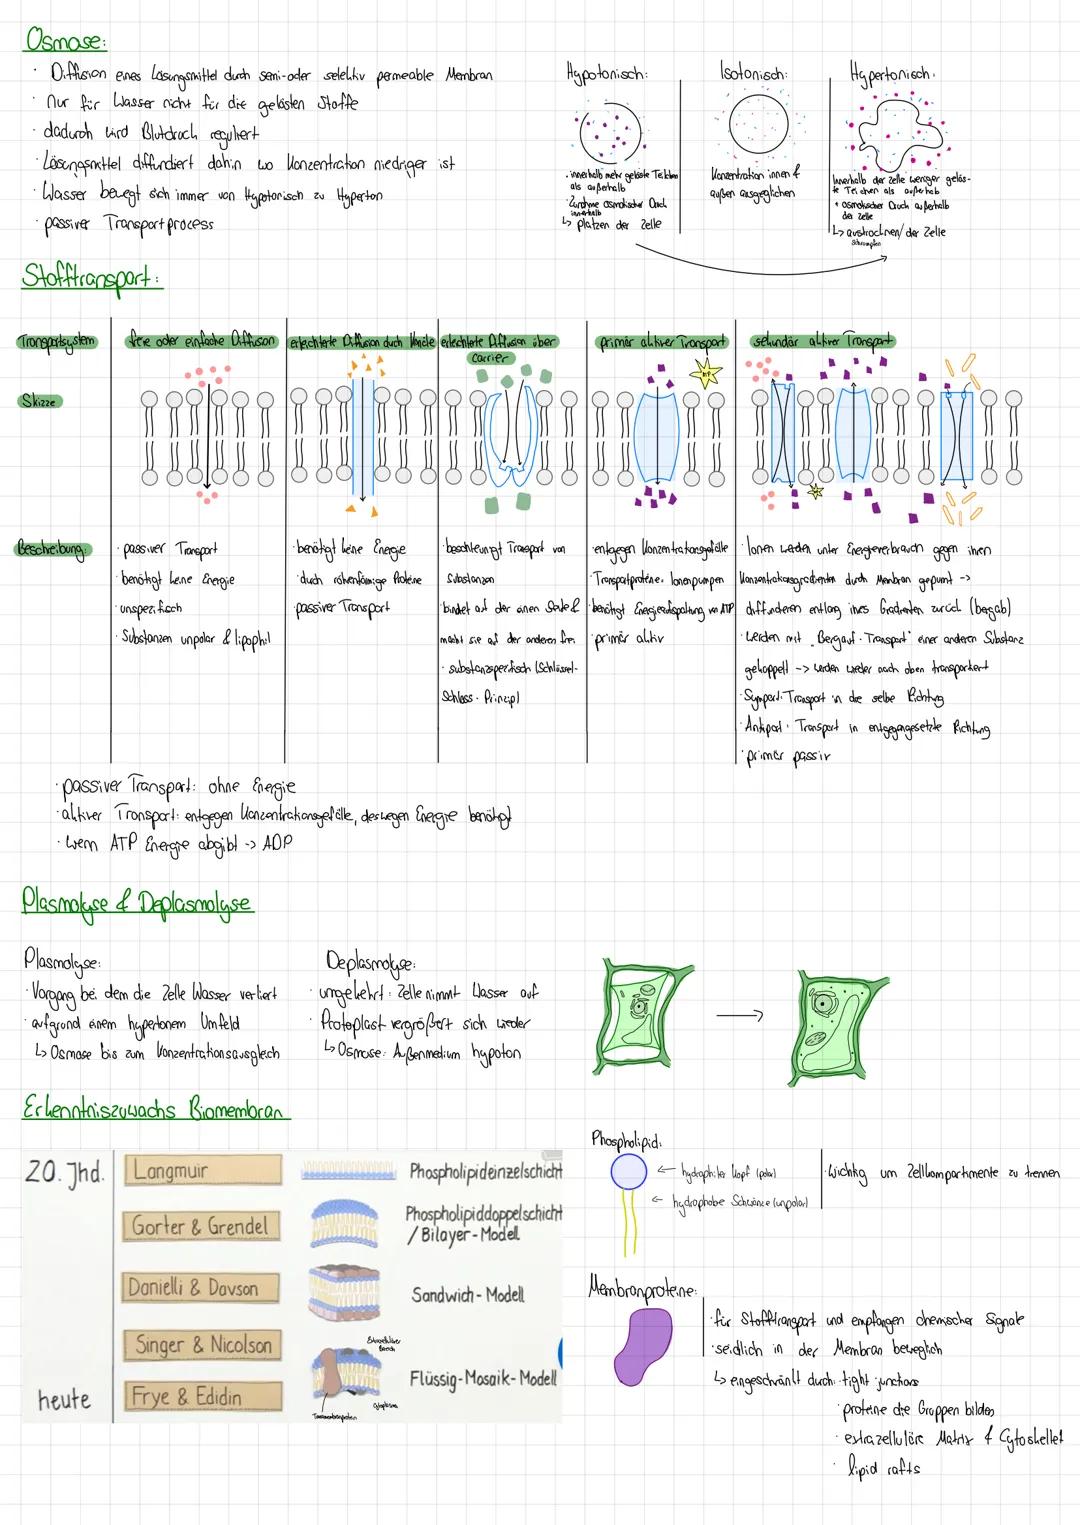 Osmose:
· Diffusion eines Lösungsmittel durch semi-oder selektiv permeable Membran
· Nur für Wasser nicht für die gelösten Stoffe
· dadurch wird Blutdruck reguliert
· Lösungsmittel diffundiert dahin wo Konzentration niedriger ist
· Wasser bewegt sich immer von Hypotonisch zu Hyperton
· passiver Transportprocess
Hypotonisch:
· innerhalb mehr gelöste Teilchen
als außerhalb
· Zunahme osmotischer Druck
innerhalb
↳ platzen der Zelle
Isotonisch:
Konzentration innen &
außen ausgeglichen
Hypertonisch:
Innerhalb der Zelle weniger gelös-
te Teilchen als außerhalb
osmotischer Druck außerhalb
der Zelle
↳ austrocknen/ der Zelle
schrumpfen
Stofftransport:
Transportsystem
freie oder einfache Diffusion
erleichterte Diffusion duch Kanäle
erleichterte Diffusion über
Carrier
primär aktiver Transport
sekundär aktiver Transport
Skizze
ATP
Beschreibung:
· passiver Transport
· benötigt keine Energie
· unspezifisch
· Substanzen unpolar & lipophil
· benötigt keine Energie
· duch röhrenförmige Proteine
· passiver Transport
· beschleunigt Transport von
Substanzen
· bindet auf der einen Seite &
macht sie auf der anderen frei
· substanzspezifisch (Schlüssel-
Schloss-Prinzip)
· entgegen Konzentrationsgefälle
· Transportproteine: Ionenpumpen
· benötigt Energieaufspaltung von ATP
· primär aktiv
· Ionen werden unter Energieverbrauch gegen ihren
Konzentrationsgradienten durch Membran gepumt ->
diffundieren entlang ihres Gradienten zurück (bergab)
· werden mit „Bergauf-Transport" einer anderen Substanz
gekoppelt -> werden wieder nach oben transportiert
· Symport: Transport in die selbe Richtung
· Antiport: Transport in entgegengesetzte Richtung
· primär passiv
· passiver Transport: ohne Energie
· aktiver Transport: entgegen Konzentrationsgefälle, deswegen Energie benötigt
· wenn ATP Energie abgibt -> ADP
Plasmolyse & Deplasmolyse
Plasmolyse:
· Vorgang bei dem die Zelle Wasser verliert
· aufgrund einem hypertonem Umfeld
↳ Osmose bis zum Konzentrationsausgleich
Deplasmolyse:
· umgekehrt: Zelle nimmt Wasser auf
· Protoplast vergrößert sich wieder
↳ Osmose: Außenmedium hypoton
Erkenntniszuwachs Biomembran
20. Jhd.
Langmuir
Phospholipideinzelschicht
Gorter & Grendel
Phospholipiddoppelschicht
/ Bilayer-Modell
Danielli & Davson
Sandwich-Modell
Singer & Nicolson
Extrazellulärer
Bereich
Flüssig-Mosaik-Modell
heute
Frye & Edidin
Cytoplasma
Transmembranprotein
Phospholipid:
← hydrophiler Kopf (polar)
← hydrophobe Schwänze (unpolar)
· wichtig um Zellkompartimente zu trennen
Membranproteine:
· für Stofftransport und empfangen chemischer Signale
· seidlich in der Membran beweglich
↳ eingeschränkt durch: tight junctions
· proteine die Gruppen bilden
· extrazelluläre Matrix & Cytoskellet
· lipid rafts